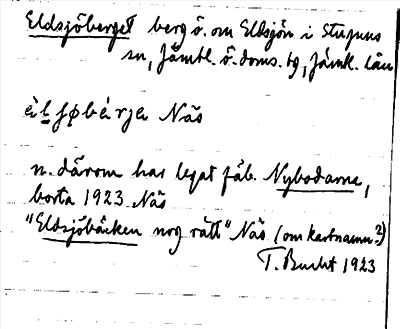 Eldsjöberget berg ö. om Eldsjön i Stuguns
sn, Jämtl. ö. doms. tg, Jämtl. län
èlʃøbǽrja Näs
n. därom har legat fäb. Nybodarna,
borta 1923 Näs
"Eldsjöbäcken nog rätt" Näs (om kartnamn?)
T. Bucht 1923